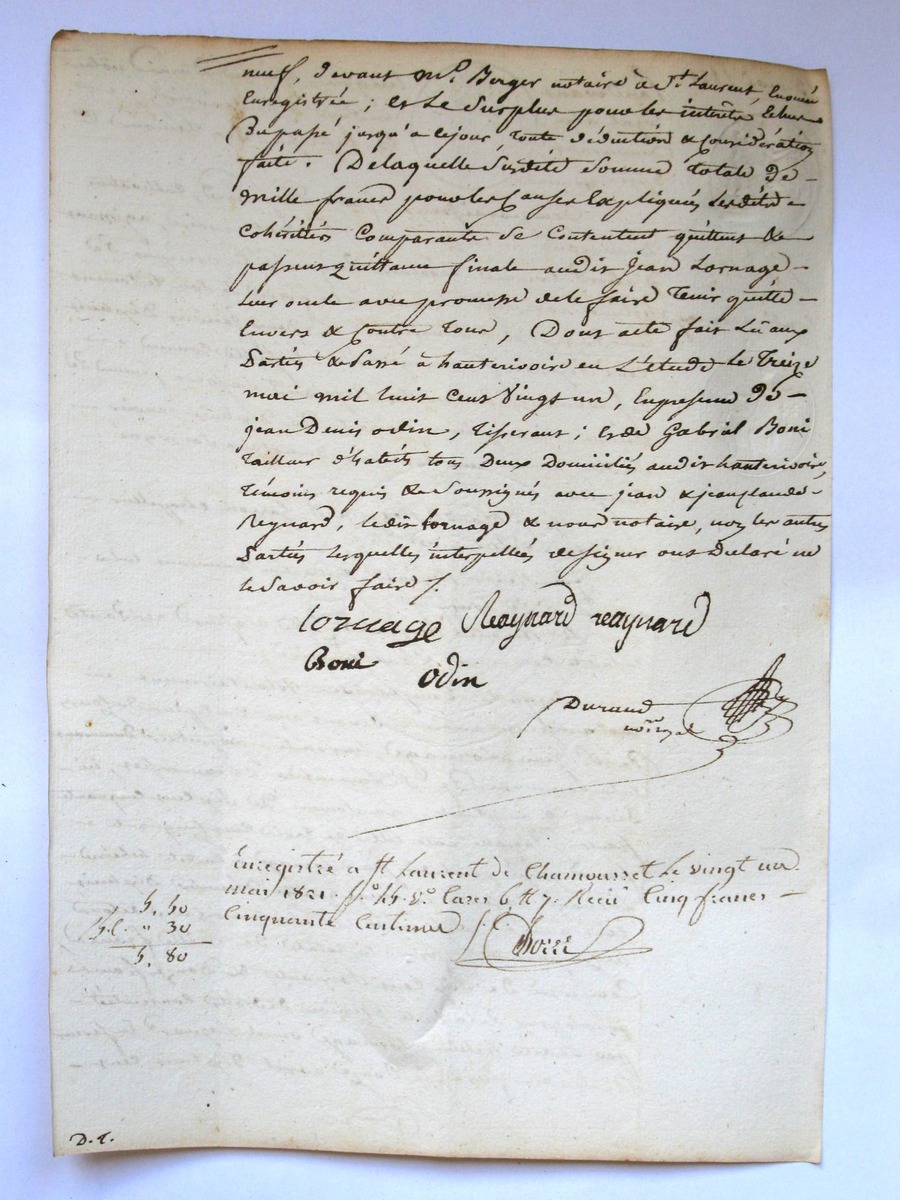 neuf, devant Me. Berger notaire à St. Laurent,
Enregistrée ; et le surplus pour les intérêts
Du passé jusqu'a ce jour, toute déduction & considération
faite. Delaquelle susdite somme totale de
mille francs pour les causes Expliquées lesdits
cohéritiers Comparants se contentent quittent &
passent quittance finale audit jean Lornage
leur oncle avec promesse de le faire tenir quitte
Envers & contre tous, Dont acte fait Lû aux
Parties & Passé à hauterivoire en L'étude le treize
mai mil huit cent vingt un, En presence De
jean Denis odin, tisserant ; et de Gabriel Boni
tailleur d'habits tous Deux Domiciliés audit hauterivoire,
témoins requis & soussignés avec jean & jean claude
Reynard, ledit Lornage & nous notaire, non les autres
Parties lesquelles interpellées de signer ont Declaré ne
le savoir faire /.
lornage Reaynard reaynard
Boni
odin
Durand
nore. royal
Enregistré a St Laurent de Chamousset Le vingt un
mai 1821. fo. 75. Vo. Cases 6 & 7. Reçu Cinq francs
Cinquante Centimes
5. 50
" 30
5. 80
D. T.